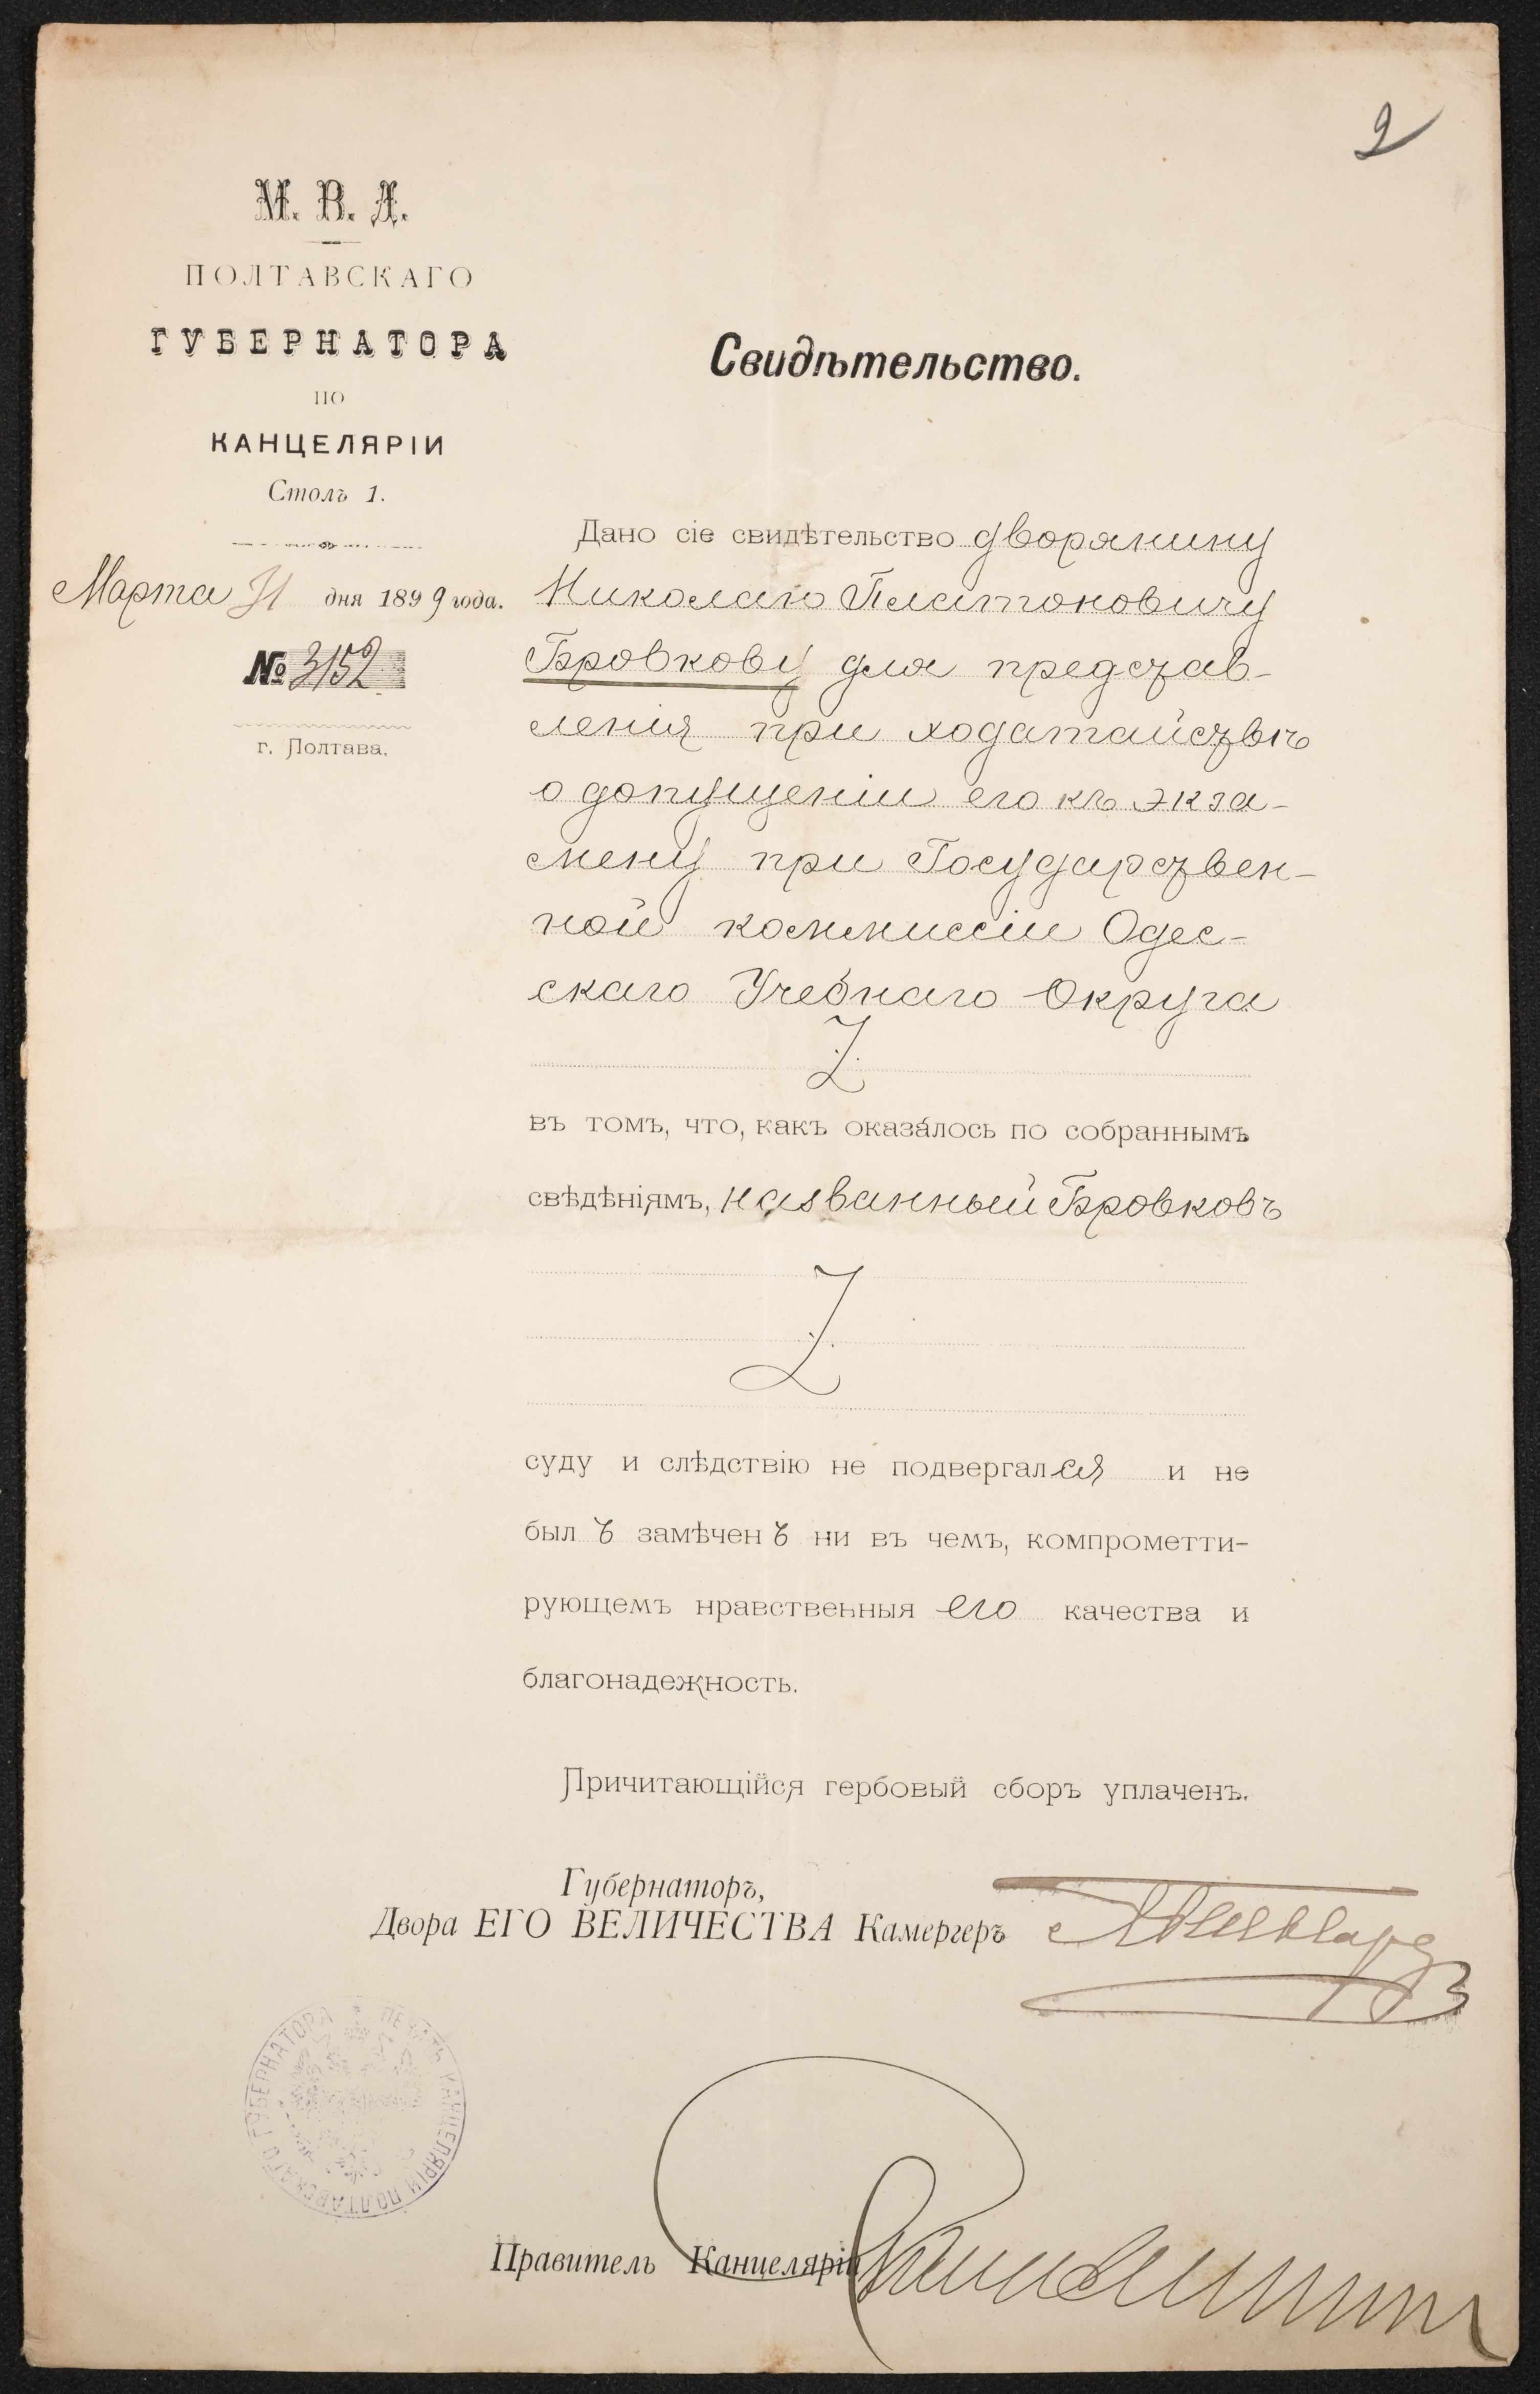 2
М. В. Д.
ПОЛТАВСКАГО
ГУБЕРНАТОРА
ПО
КАНЦЕЛЯРІИ
Столъ 1.
Марта 31 дня 1899 года.
№ 3152
г. Полтава.
Свидѣтельство.
Дано сіе свидѣтельство дворянину
Николаю Платоновичу
Бровкову для представ-
ленія при ходатайствѣ
о допущеніи его къ экза-
мену при Государствен-
ной коммиссіи Одес-
скаго Учебнаго Округа
въ томъ, что, какъ оказа́лось по собраннымъ
свѣдѣніямъ, названный Бровковъ
суду и слѣдствію не подвергался и не
былъ замѣченъ ни въ чемъ, компрометти-
рующемъ нравственныя его качества и
благонадежность.
Причитающійся гербовый сборъ уплаченъ.
Губернаторъ,
Двора ЕГО ВЕЛИЧЕСТВА Камергеръ
ПЕЧАТЬ КАНЦЕЛЯРІИ ПОЛТАВСКАГО ГУБЕРНАТОРА
Правитель Канцеляріи